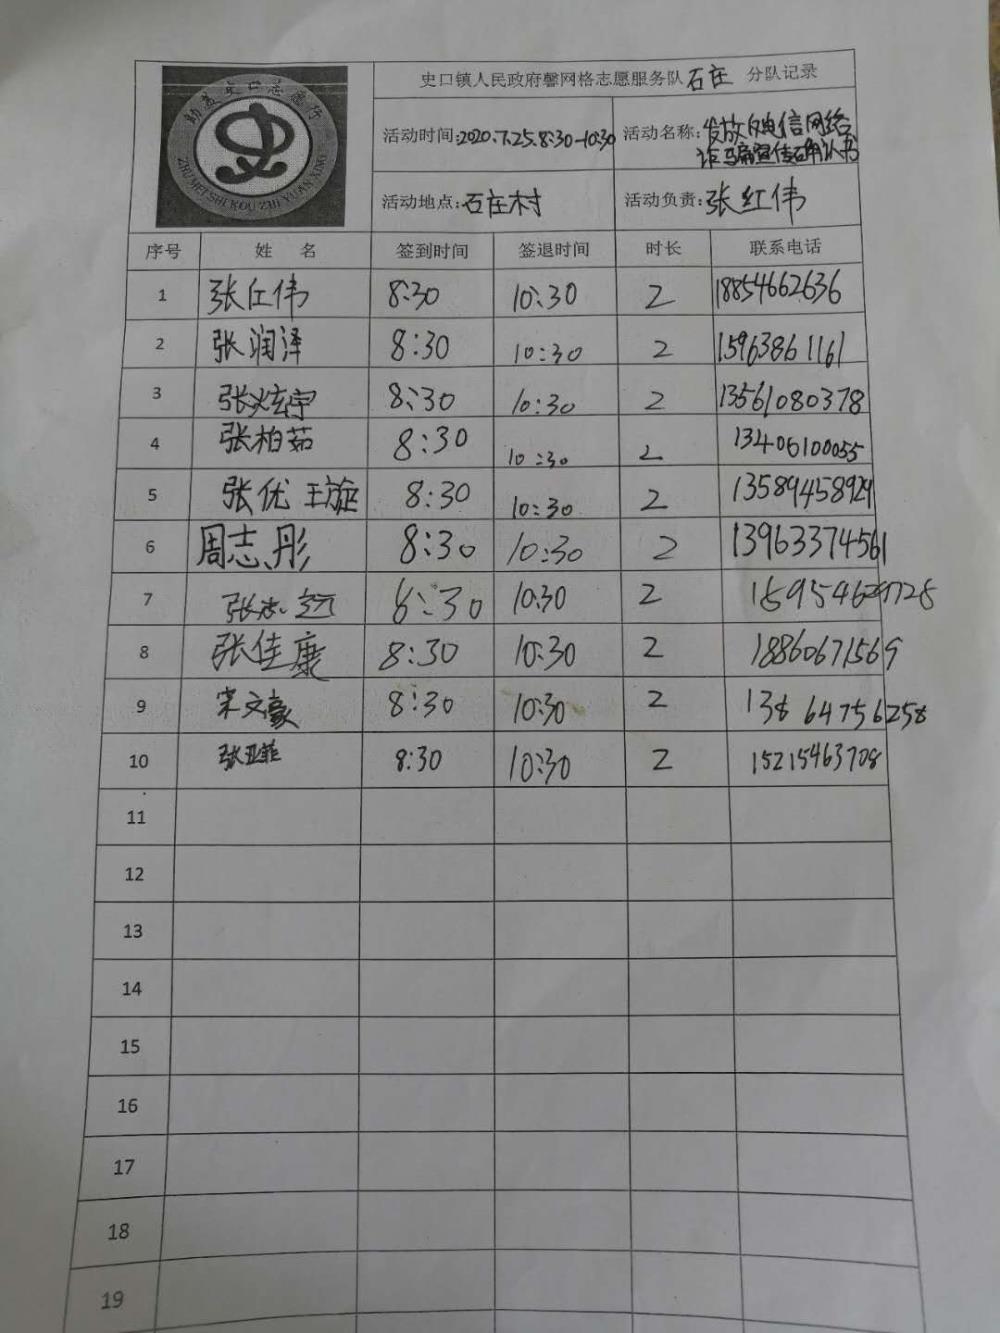 助美史口志愿行
ZHU MEI SHI KOU ZHI YUAN XING
史口镇人民政府馨网格志愿服务队石庄 分队记录
活动时间:2020.7.25.8:30-10:30 活动名称:发放反电信网络
诈骗宣传确认书
活动地点:石庄村 活动负责:张红伟
序号 姓 名 签到时间 签退时间 时长 联系电话
1 张仕伟 8:30 10:30 2 18854662636
2 张润泽 8:30 10:30 2 15963861161
3 张炫宇 8:30 10:30 2 13561080378
4 张柏茹 8:30 10:30 2 13406100055
5 张优 8:30 10:30 2 13589458929
6 周志彤 8:30 10:30 2 13963374561
7 张志远 8:30 10:30 2
8 张佳康 8:30 10:30 2 18860671569
9 宋文豪 8:30 10:30 2 13864756258
10 张亚菲 8:30 10:30 2 15215463708
11
12
13
14
15
16
17
18
19